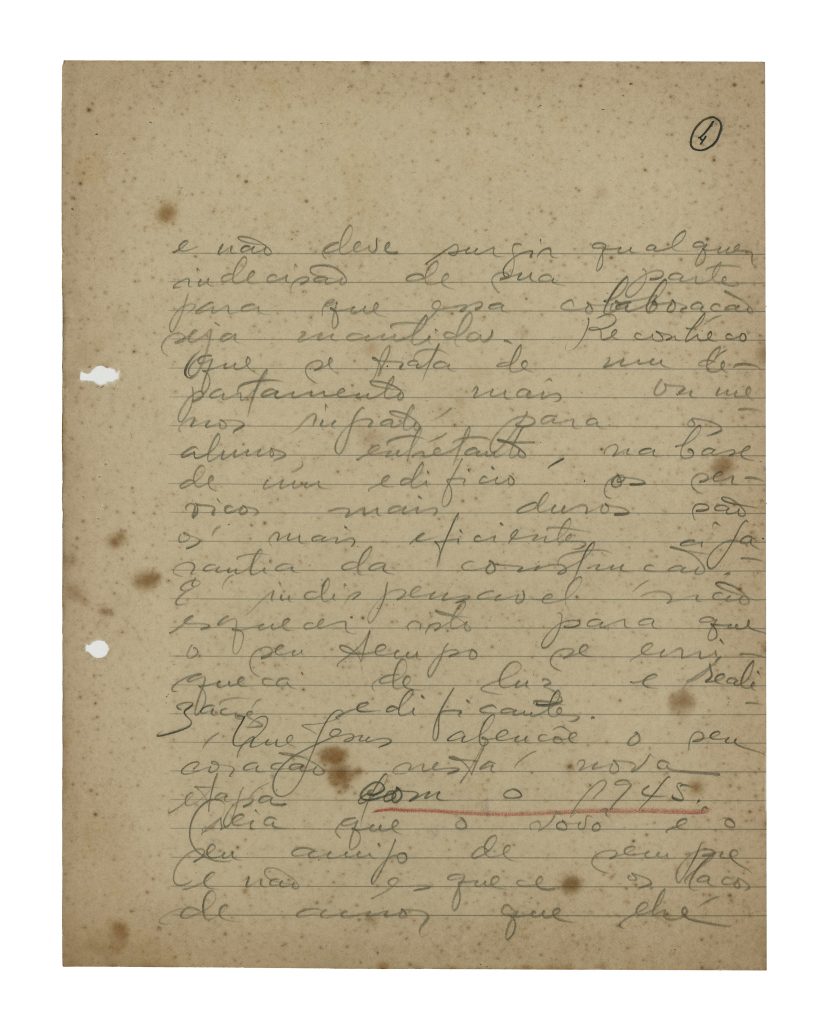 4
e não deve surgir qualquer
indecisão de sua parte
para que essa colaboracão
seja mantida. Reconheco
que se trata de um de-
partamento mais ou me-
nos ingrato para os
alunos entretanto, na base
de um edificio os ser-
vicos mais duros são
os mais eficientes á ga-
rantia da construcão.
E' indispensavel não
esquecer isto para que
o seu tempo se enri-
queca de luz e reali-
zacões edificantes.
Que Jesus abencõe o seu
coração nesta nova
etapa com o 1945.
Creia que o vovô é o
seu amigo de sempre
e não esquece os lacos
de amor que